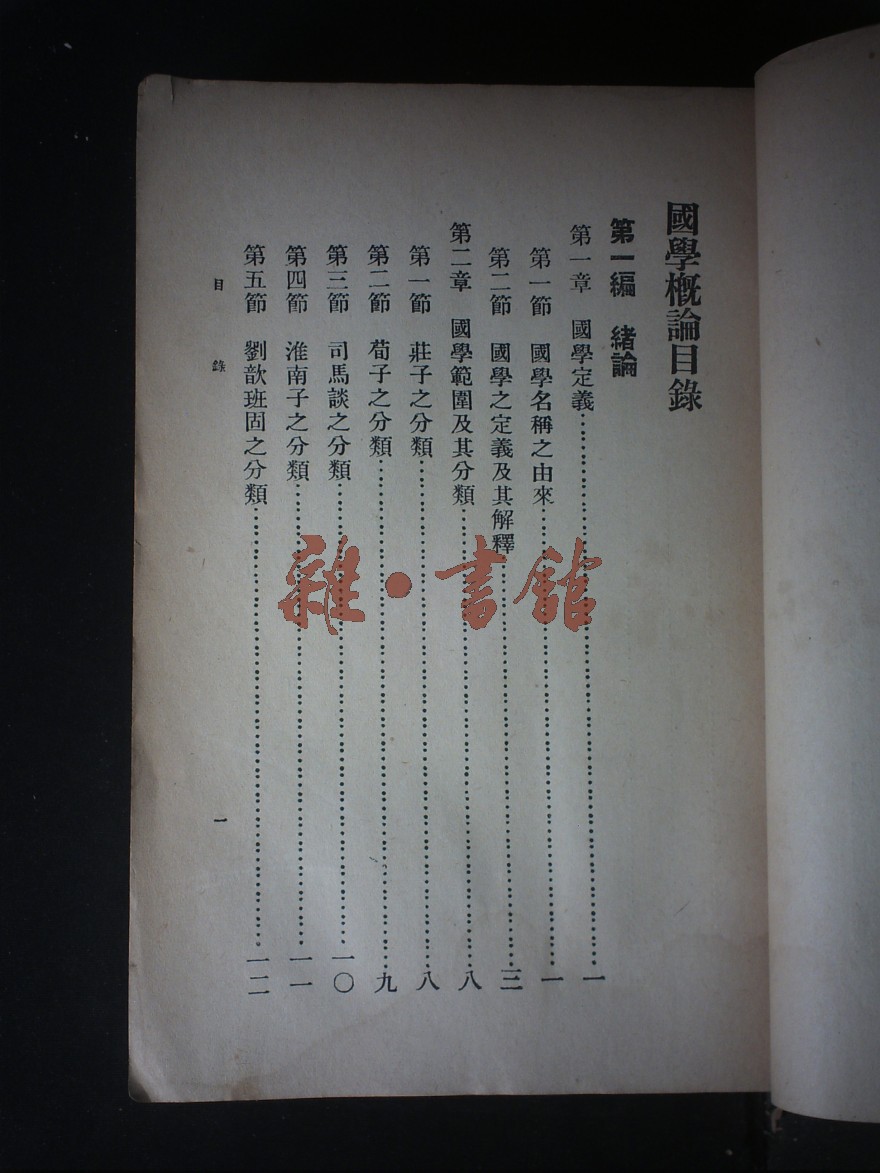 國學概論目錄
第一編 緒論
第一章 國學定義……一
第一節 國學名稱之由來……一
第二節 國學之定義及其解釋……三
第二章 國學範圍及其分類……八
第一節 莊子之分類……八
第二節 荀子之分類……九
第三節 司馬談之分類……一〇
第四節 淮南子之分類……一一
第五節 劉歆班固之分類……一二
目錄 一
雜·書館